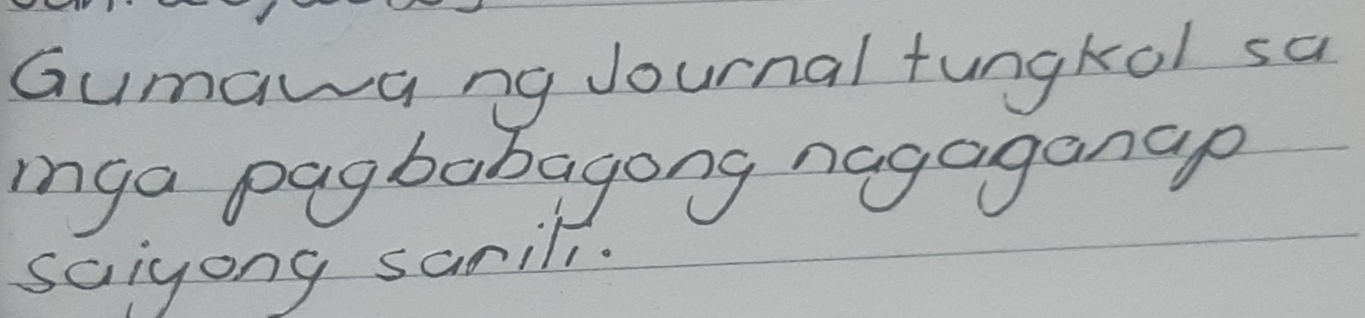 Gumawa ng Journal tungkol sa
mga pagbabagong nagaganap
saiyong sarili.